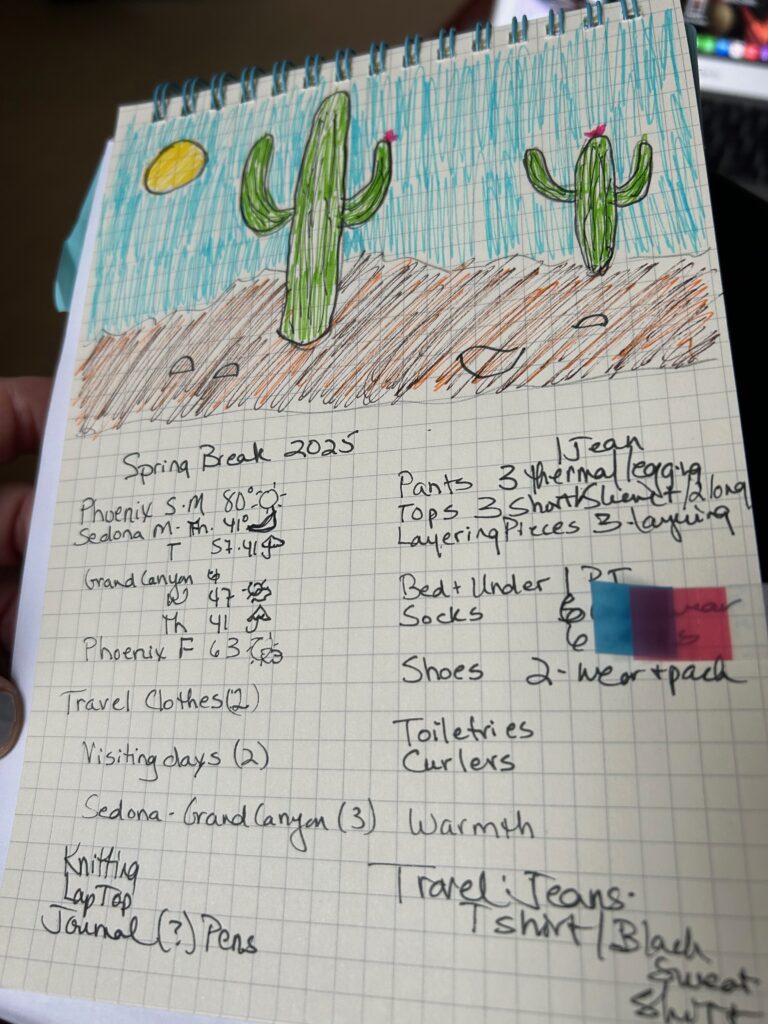 Spring Break 2025
Phoenix S.M 80°
Sedona M. Th. 41°
T 57.41
Grand Canyon
W 47
Th 41
Phoenix F 63
Travel Clothes (2)
Visiting days (2)
Sedona - Grand Canyon (3)
Knitting
LapTop
Journal (?) Pens
1 Jean
Pants 3 thermal legging
Tops 3 Short Sleeve / 2 long
Layering Pieces 3 - layering
Bed + Under 1 PJ
Socks 6
6
Shoes 2 - wear + pack
Toiletries
Curlers
Warmth
Travel: Jeans.
T shirt / Black
Sweat
Shirt